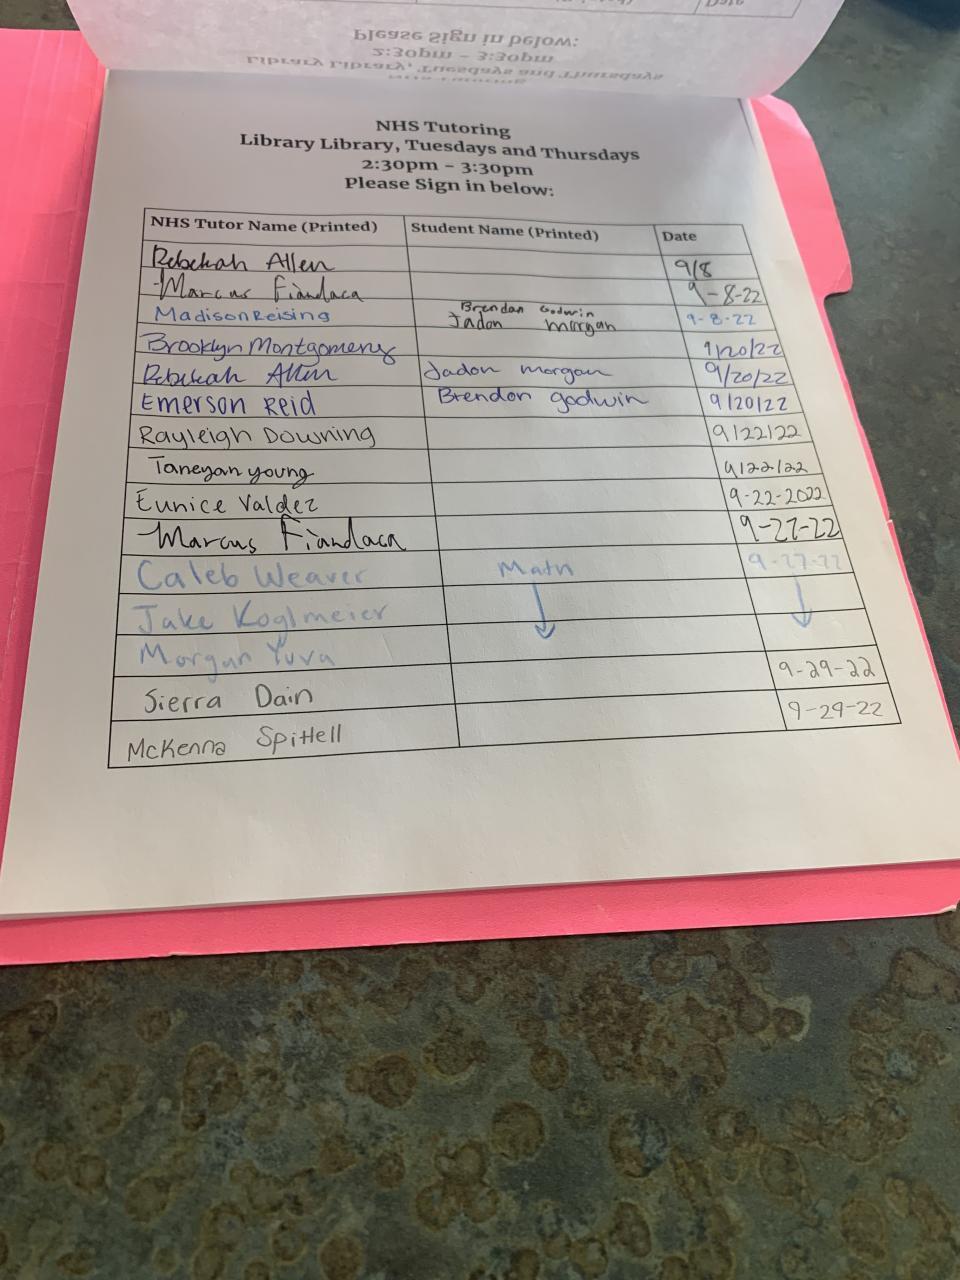 Date
Please Sign in below:
2:30pm – 3:30pm
Library Library, Tuesdays and Thursdays
NHS Tutoring
NHS Tutoring
Library Library, Tuesdays and Thursdays
2:30pm – 3:30pm
Please Sign in below:
NHS Tutor Name (Printed) Student Name (Printed) Date
Rebekah Allen 9/8
Marcus Fiandaca 9-8-22
Madison Reising Brendan Godwin 9-8-22
Jadon morgan
Brooklyn Montgomery 9/20/22
Rebekah Allen Jadon morgan 9/20/22
Emerson Reid Brendon godwin 9/20/22
Rayleigh Downing 9/22/22
Taneyan young 9/22/22
Eunice Valdez 9-22-2022
Marcus Fiandaca 9-27-22
Caleb Weaver Math 9-27-22
Jake Koglmeier
Morgan Yuva
Sierra Dain 9-29-22
McKenna Spittell 9-29-22